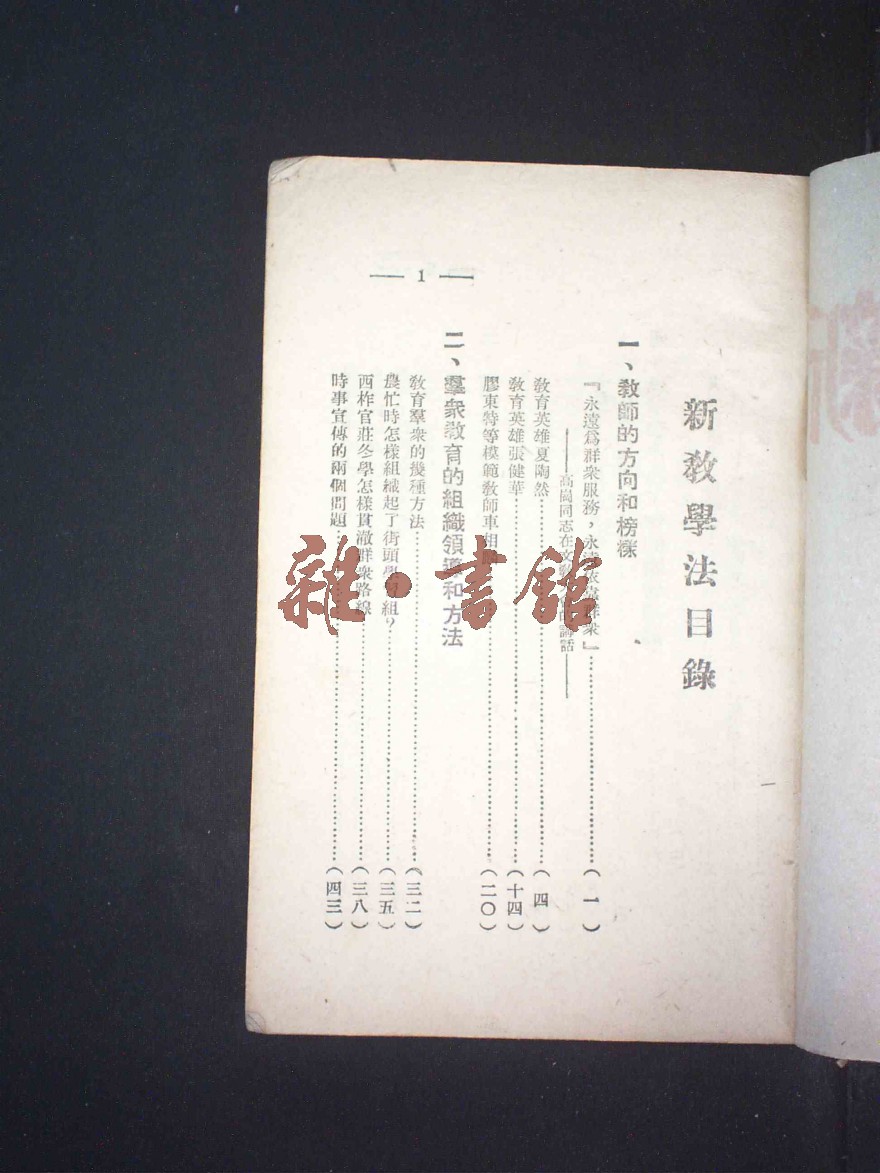 新教學法目錄
一、教師的方向和榜樣
『永遠爲群衆服務,永遠依靠群衆』……(一)
——高崗同志在文教 講話——
教育英雄夏陶然……(四)
教育英雄張健華……(十四)
膠東特等模範教師車相……(二〇)
二、羣衆教育的組織領導和方法
教育羣衆的幾種方法……(三二)
農忙時怎樣組織起了街頭學習組?……(三五)
西柞官莊冬學怎樣貫澈群衆路線……(三八)
時事宣傳的兩個問題……(四三)
— 1 —
雜·書館